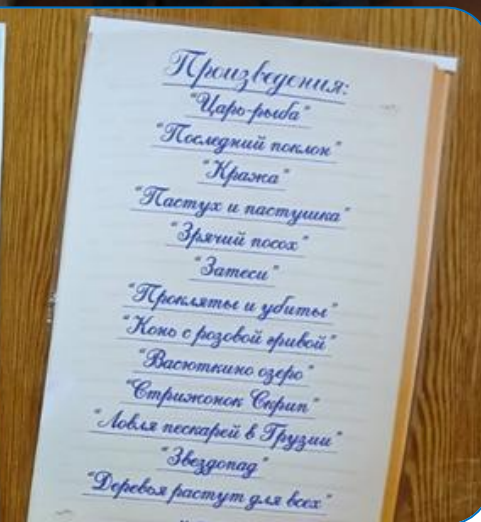 Произведения:
"Царь-рыба"
"Последний поклон"
"Кража"
"Пастух и пастушка"
"Зрячий посох"
"Затеси"
"Прокляты и убиты"
"Конь с розовой гривой"
"Васюткино озеро"
"Стрижонок Скрип"
"Ловля пескарей в Грузии"
"Звездопад"
"Деревья растут для всех"